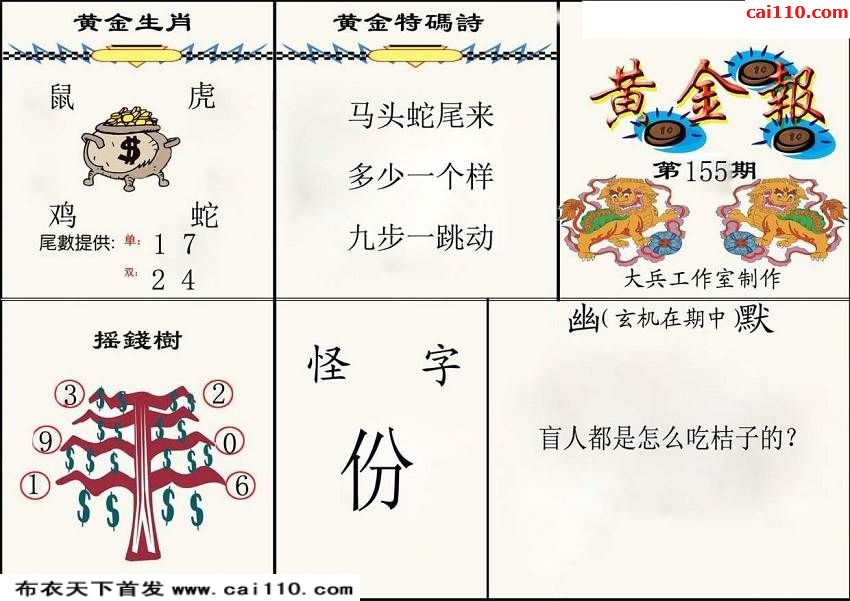 cai110.com
黄金生肖
鼠 虎
$
鸡 蛇
尾數提供: 单: 1 7
双: 2 4
黄金特碼詩
马头蛇尾来
多少一个样
九步一跳动
黄金報
第155期
大兵工作室制作
摇錢樹
3 2
9 0
1 6
怪 字
份
幽(玄机在期中)默
盲人都是怎么吃桔子的?
布衣天下首发 www.cai110.com